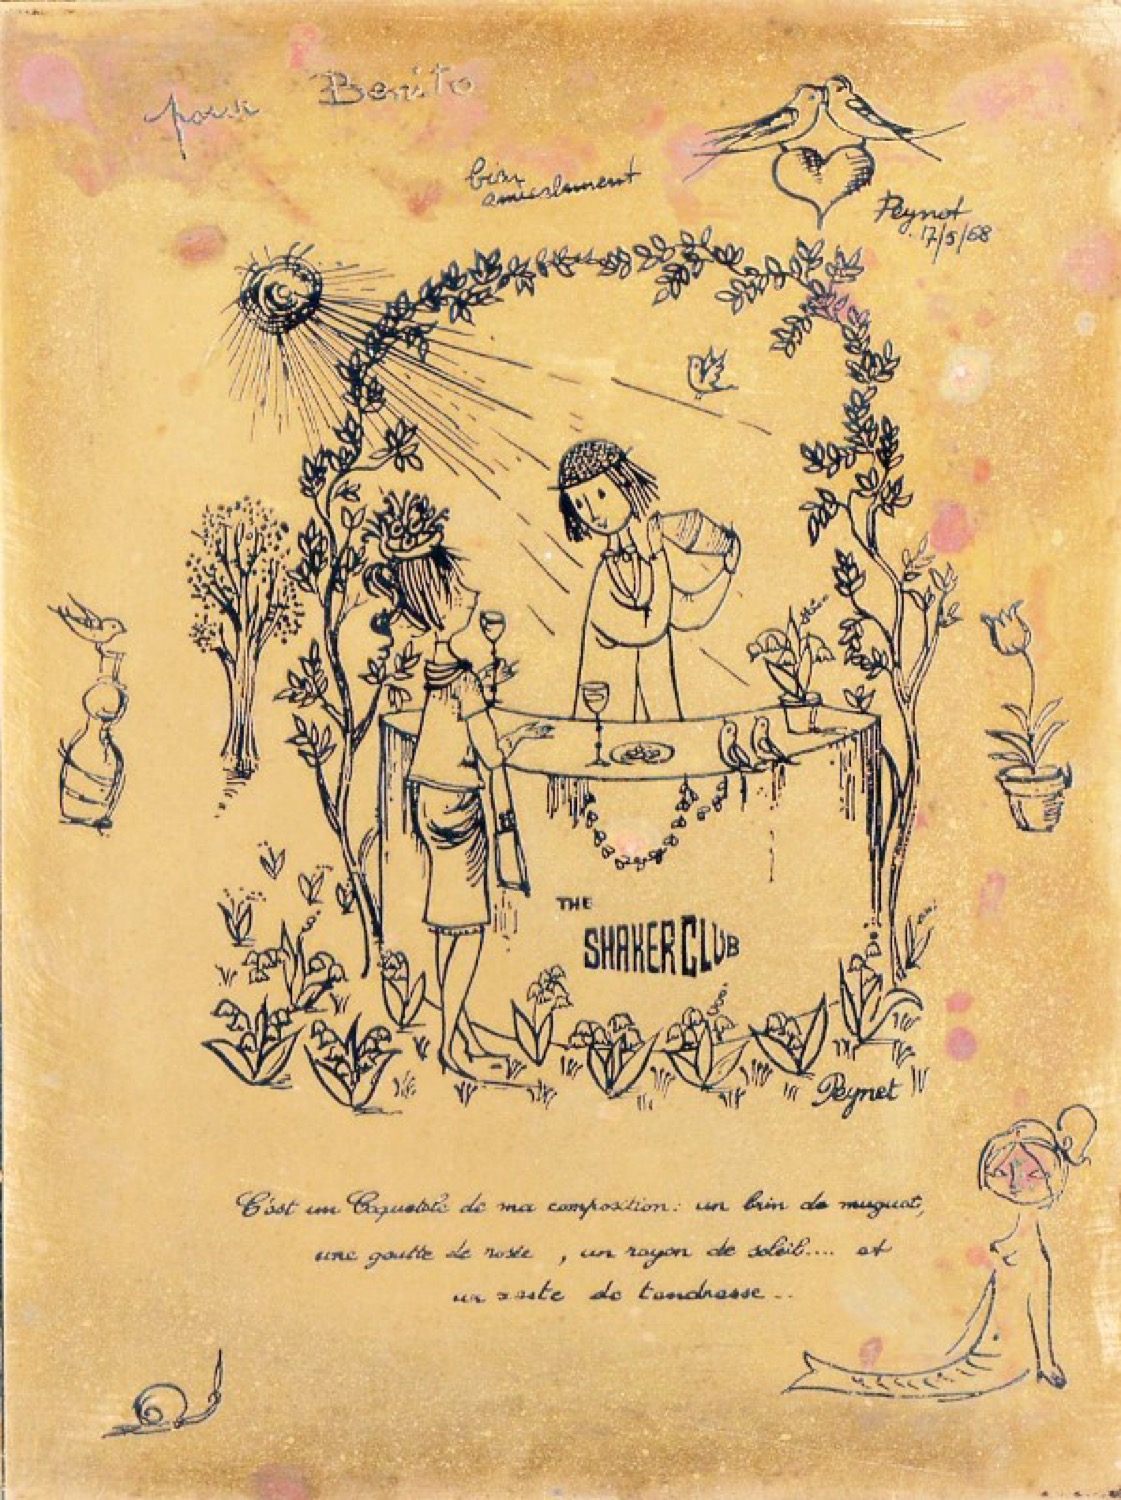 pour Benito
bien
amicalement
Peynet
17/5/68
THE
SHAKER CLUB
Peynet
C'est un Coquetele de ma composition: un brin de muguet,
une goutte de rosée , un rayon de soleil.... et
un zeste de tendresse...